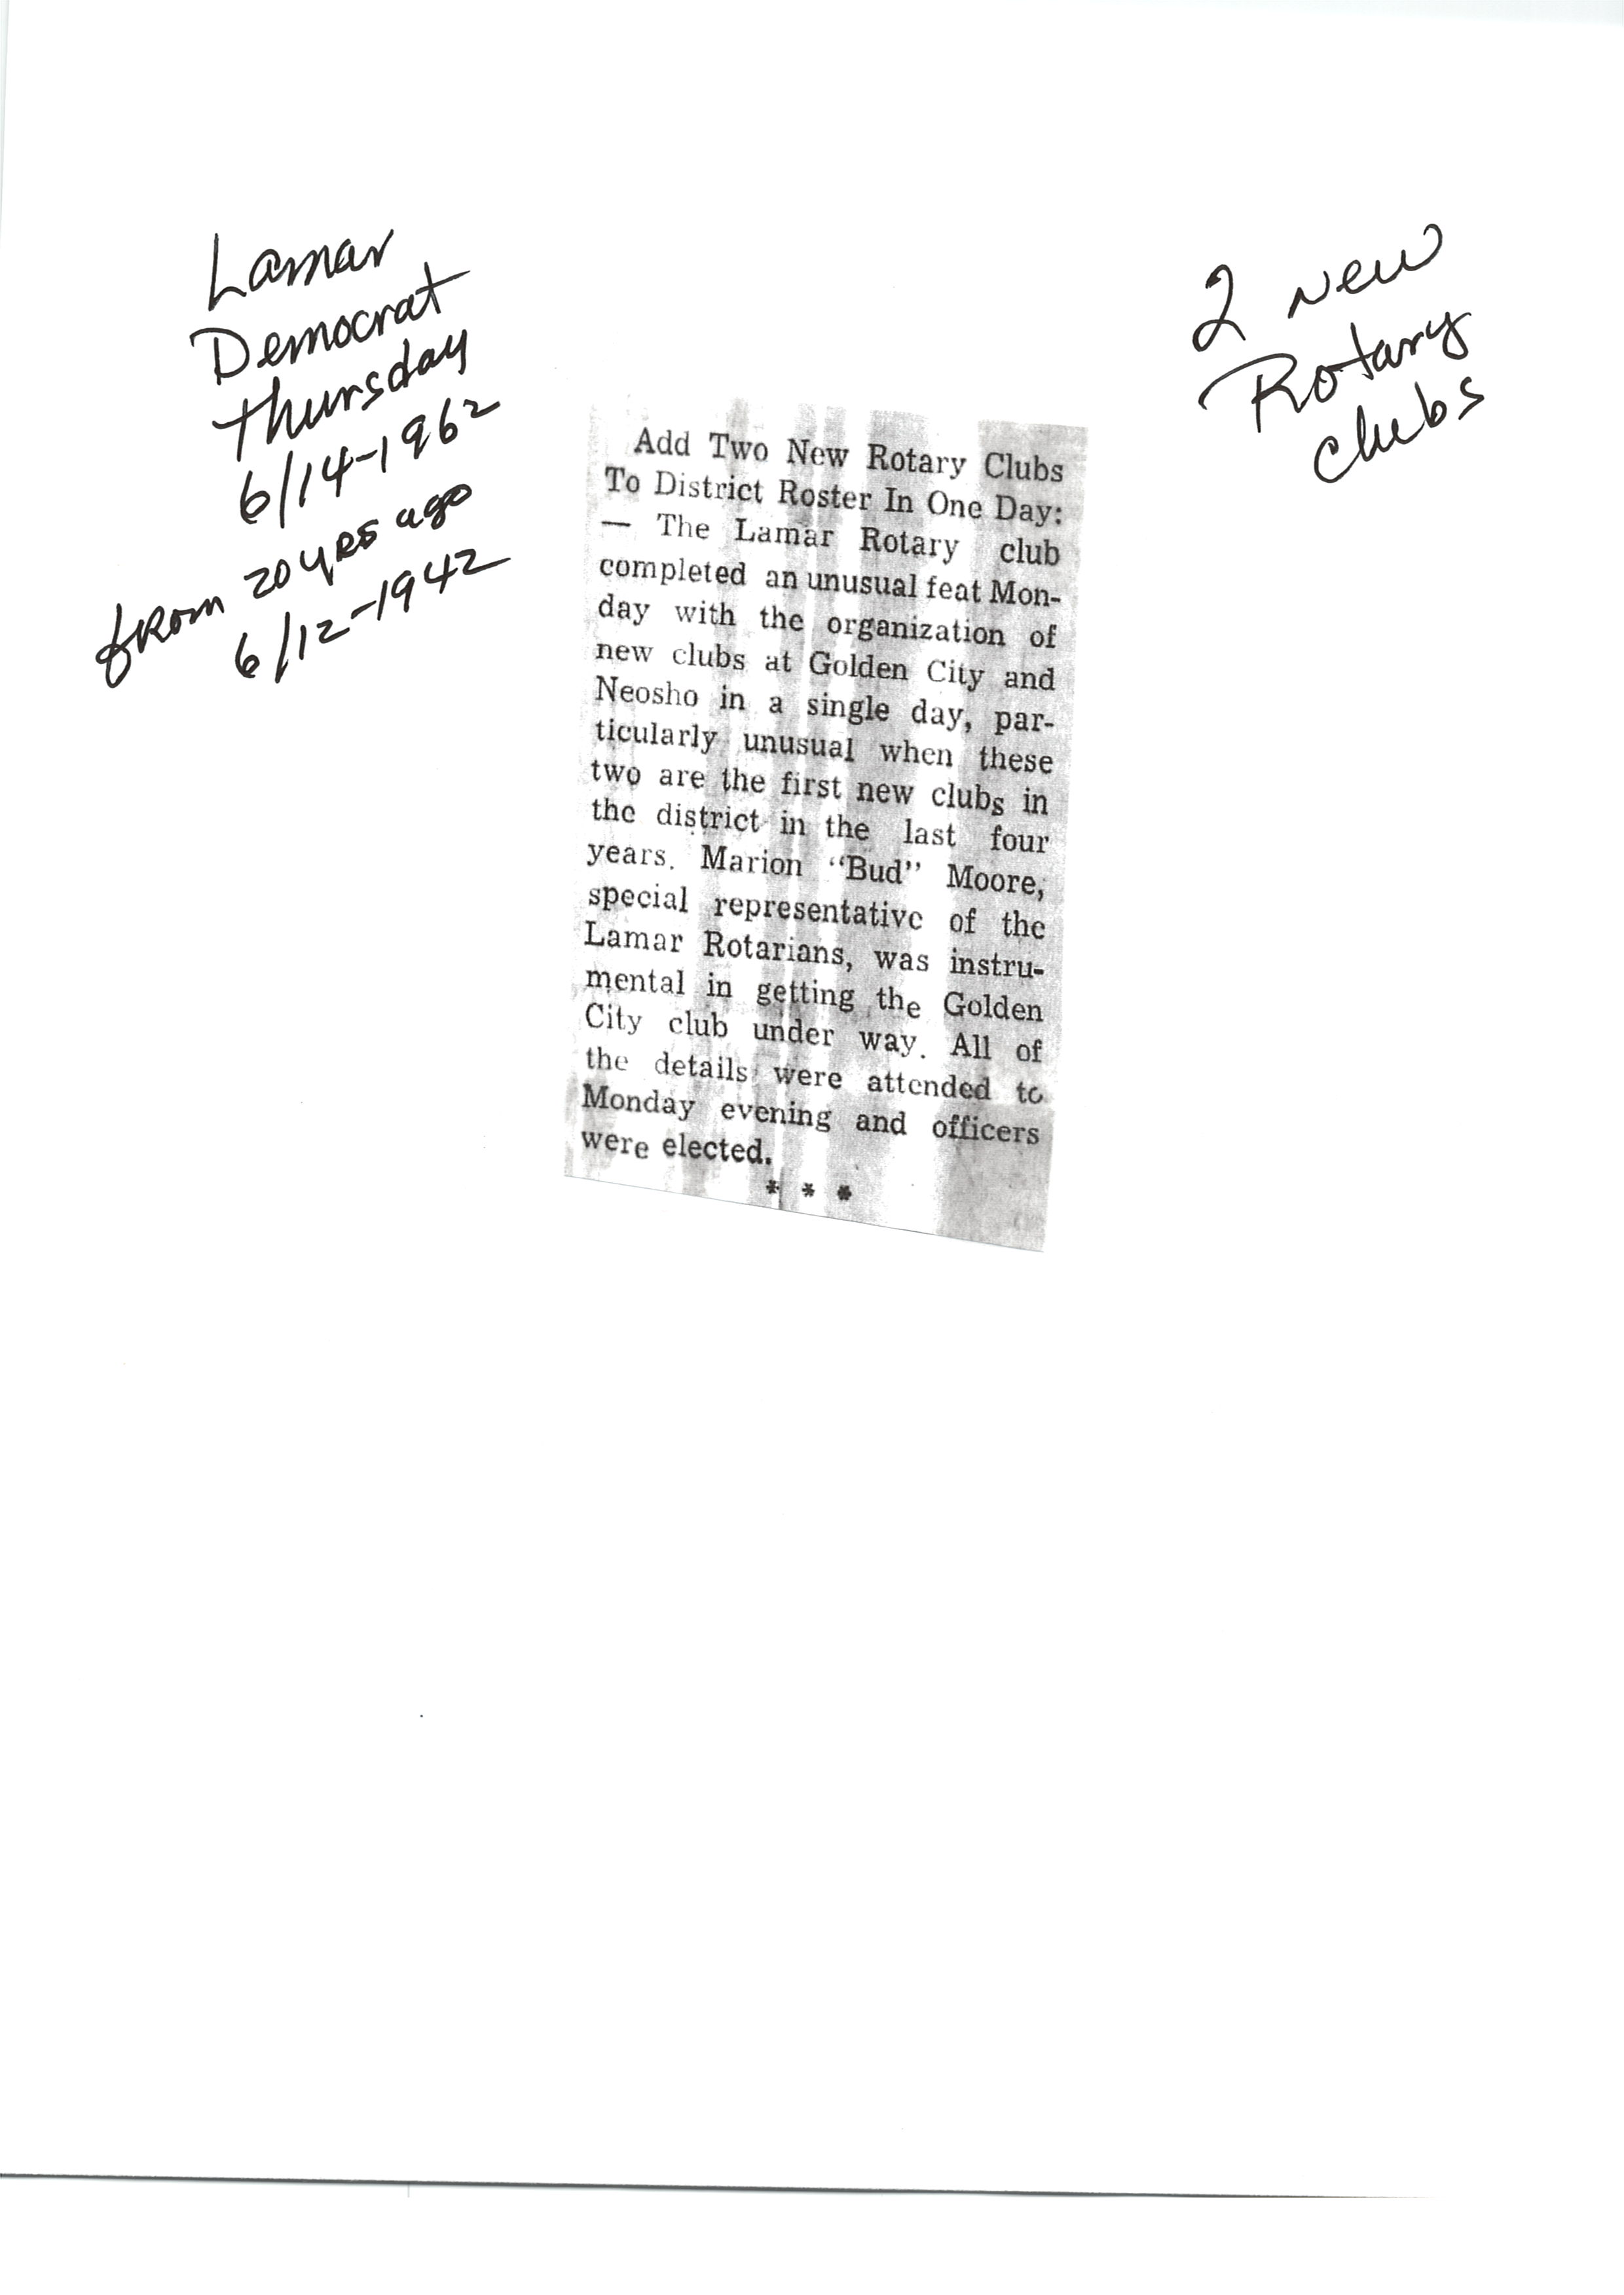 Lamar
Democrat
Thursday
6/14-1962
from 20 yrs ago
6/12-1942
2 New
Rotary
Clubs
Add Two New Rotary Clubs
To District Roster In One Day:
— The Lamar Rotary club
completed an unusual feat Mon-
day with the organization of
new clubs at Golden City and
Neosho in a single day, par-
ticularly unusual when these
two are the first new clubs in
the district in the last four
years. Marion “Bud” Moore,
special representative of the
Lamar Rotarians, was instru-
mental in getting the Golden
City club under way. All of
the details were attended to
Monday evening and officers
were elected.
* * *